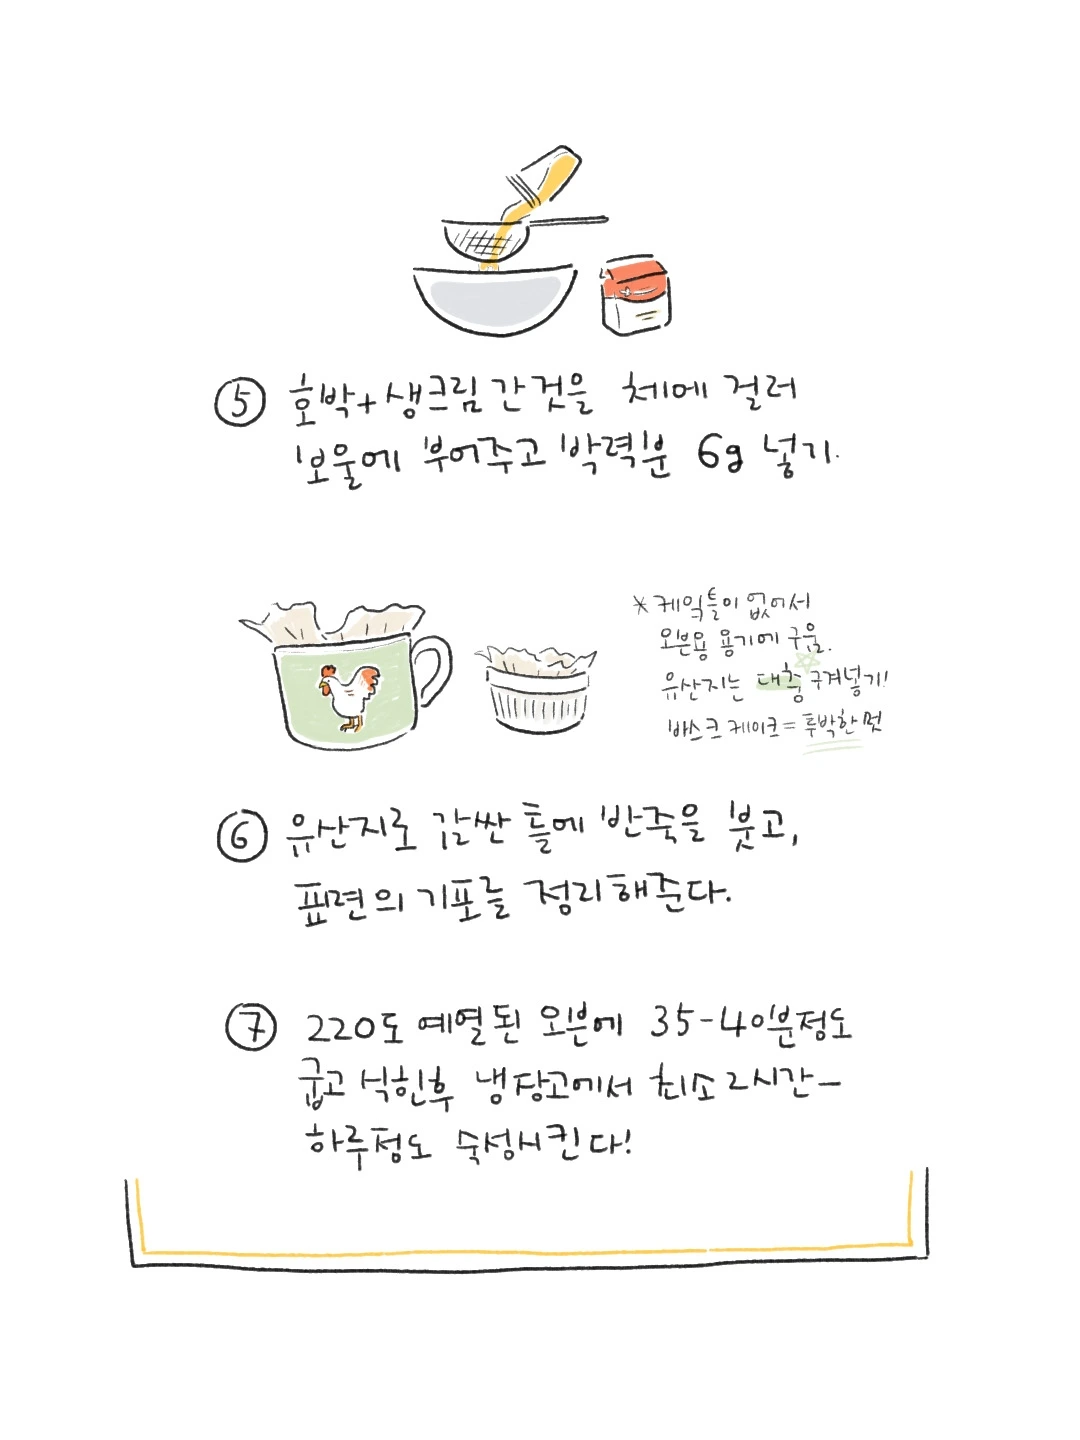 ⑤ 호박+생크림 간것을 체에 걸러
보울에 부어주고 박력분 6g 넣기.
* 케익틀이 없어서
오븐용 용기에 구움.
유산지는 대충 구겨넣기!
바스크 케이크 = 투박한 멋
⑥ 유산지로 감싼 틀에 반죽을 붓고,
표면의 기포를 정리해준다.
⑦ 220도 예열된 오븐에 35-40분정도
굽고 식힌후 냉장고에서 최소 2시간-
하루정도 숙성시킨다!